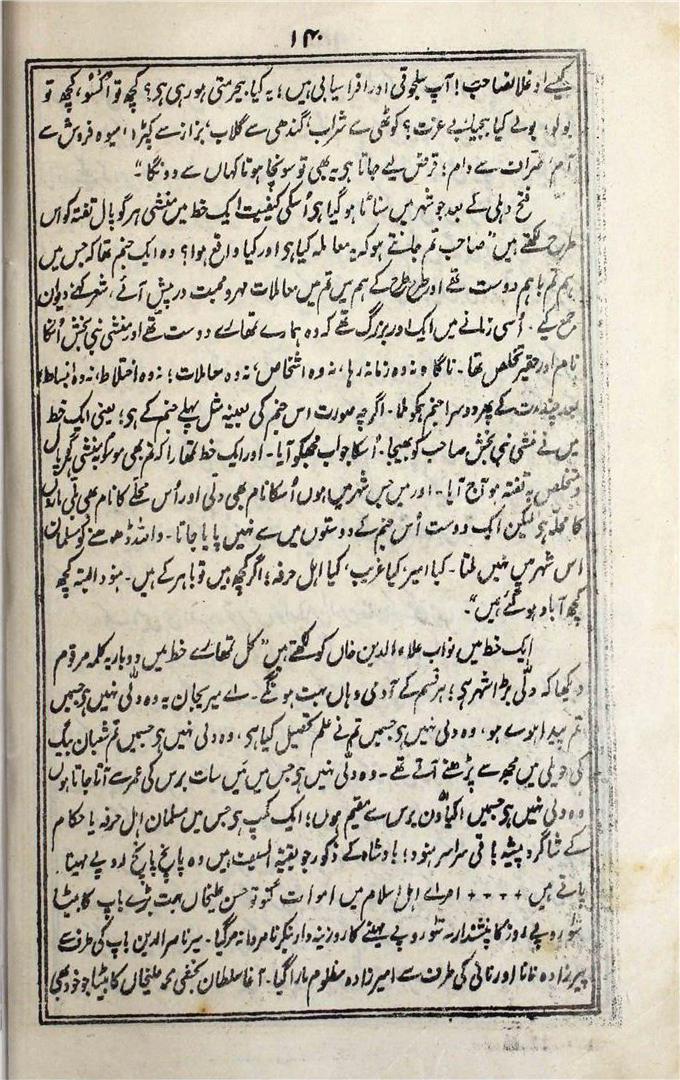 ۱۴۰
کہیے اوغلانصاحب! آپ سلجوقی اور افراسیابی ہیں؛ یہ کیا بیحرمتی ہو رہی ہی؟ کچھ تو اُکسُو، کچھ تو
بولو؛ بولے کیا بیحیا بے عزت؟ کوٹھی سے شراب، گندھی سے گلاب، بزاز سے کپڑا، میوہ فروش سے
آم، صراف سے دام؛ قرض لیے جاتا ہی یہ بھی تو سونچا ہوتا کہاں سے دونگا"
فتح دہلی کے بعد جو شہر میں سناٹا ہو گیا ہی اُسکی کیفیت ایک خط میں منشی ہرگوپال تفتہ کو اس
طرح لکھتے ہیں "صاحب تم جانتے ہو کہ یہ معاملہ کیا ہی اور کیا واقع ہوا؟ وہ ایک جنم تھا کہ جس میں
ہم تم باہم دوست تھے اور طرح طرح کے ہم میں تم میں معاملات مہر و محبت درپیش آئے، شعر کہے دیوان
جمع کیے۔ اُسی زمانے میں ایک اور بزرگ تھے کہ وہ ہمارے تمھارے دوست تھے اور منشی نبی بخش اُنکا
نام اور حقیر تخلص تھا۔ ناگاہ نہ وہ زمانہ رہا، نہ وہ اشخاص، نہ وہ معاملات؛ نہ وہ اختلاط، نہ وہ انبساط؛
بعد چند مدت کے پھر دوسرا جنم ہمکو ملا۔ اگرچہ صورت اس جنم کی بعینہ مثل پہلے جنم کے ہی؛ یعنی ایک خط
میں نے منشی نبی بخش صاحب کو بھیجا۔ اُسکا جواب مجھکو آیا۔ اور ایک خط تمھارا کہ تم بھی موسوم بہ منشی ہرگوپال
و متخلص بہ تفتہ ہو آج آیا۔ اور میں جس شہر میں ہوں اُسکا نام بھی دلی اور اُس محلے کا نام بھی بلی ماروں
کا محلہ ہی لیکن ایک دوست اُس جنم کے دوستوں میں سے نہیں پایا جاتا۔ واللہ ڈھونڈھنے کو مسلمان
اس شہر میں نہیں ملتا۔ کیا امیر، کیا غریب، کیا اہل حرفہ؛ اگر کچھ ہیں تو باہر کے ہیں۔ ہنود البتہ کچھ
کچھ آباد ہو گئے ہیں"۔
ایک خط میں نواب علاء الدین خاں کو لکھتے ہیں "کل تمھارے خط میں دوبار یہ کلمہ مرقوم
دیکھا کہ دلّی بڑا شہر ہی؛ ہر قسم کے آدمی وہاں بہت ہونگے۔ اے میریجان یہ وہ دلّی نہیں ہی جسمیں
تم پیدا ہوے ہو، وہ دلی نہیں ہی جسمیں تم نے علم تحصیل کیا ہی، وہ دلی نہیں ہی جسمیں تم شعبان بیگ
کی حویلی میں مجھ سے پڑھنے آتے تھے۔ وہ دلّی نہیں ہی جس میں میں سات برس کی عمر سے آتا جاتا ہوں
وہ دلی نہیں ہی جسمیں اکیاون برس سے مقیم ہوں؛ ایک کمپ ہی جس میں مسلمان اہل حرفہ یا حکام
کے شاگرد پیشہ باقی سراسر ہنود؛ بادشاہ کے ذکور جو بقیۃ السیف ہیں وہ پانچ پانچ روپے مہینا
پاتے ہیں ++++ امراے اہل اسلام میں اموات گنو تو حسن علیخاں بہت بڑے باپ کا بیٹا
سو روپے روز کا پنشندار سو روپے مہینے کا روزینہ دار بنکر نامرادانہ مر گیا۔ میر ناصر الدین باپ کی طرف سے
پیرزادہ نانا اور نانی کی طرف سے امیرزادہ مظلوم مارا گیا۔ آغا سلطان بخشی محمد علیخاں کا بیٹا جو خود بھی